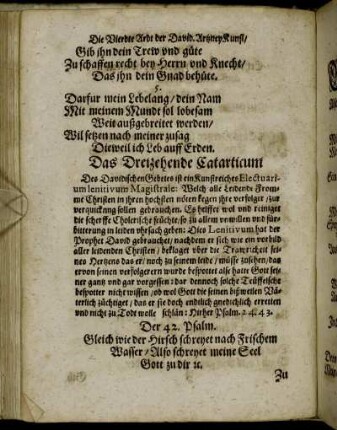 Die Vierdte Ardt der David. Artzney Kunst/
Gib ihn dein Trew vnd güte
Zu schaffen recht bey Herrn vnd Knecht/
Das ihn dein Gnad behüte.
5.
Darfur mein Lebelang/dein Nam
Mit meinem Mund sol lobesam
Weit außgebreitet werden/
Wil setzen nach meiner zusag
Dieweil ich Leb auff Erden.
Das Dreizehende Catarticum
Des Davidischen Gebetes ist ein Kunstreiches Electuari-
um lenitivum Magistrale: Welch alle Leidende From-
me Christen in ihren hochsten nöten gegen ihre verfolger/zur
verquickung sollen gebrauchen. Es heiffet wol vnd reiniget
die scherffe Cholerische feuchte/so zu allem vnwillen vnd für-
bitterung in leiden vhrsach geben: Dies Lenitivum hat der
Prophet David gebrauchet/nachdem er sich wie ein vorbild
aller leidenden Christen/beklaget vber die Trawrickeit sei-
nes Hertzens das er/noch zu seinem leide/müsse zusehen/das
er von seinen verfolgeren wurde bespottet als hatte Gott sei-
ner gantz vnd gar vorgessen: dar dennoch solche Trüffeische
bespotter nicht wissen/ob wol Gott die seinen bißweilen Vä-
terlich züchtiget/das er sie doch endlich gnedichlich erretten
vnd nicht zu Tode wolle schlan: Hieher Psalm. 2 4. 43.
Der 42. Psalm.
Gleich wie der Hirsch schreyet nach Frischem
Wasser/Also schreyet meine Seel
Gott zu dir ꝛc.
Zu